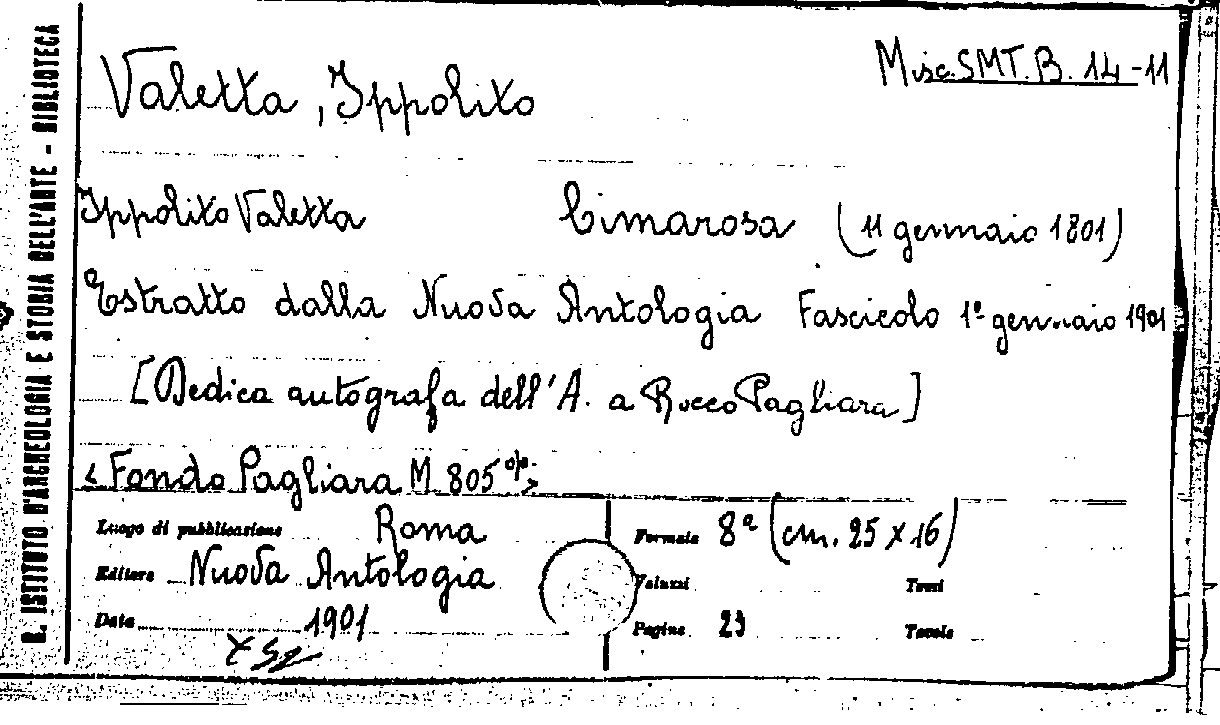 R. ISTITUTO D'ARCHEOLOGIA E STORIA DELL'ARTE - BIBLIOTECA
Valetta, Ippolito
Misc. SMT. B. 14-11
Ippolito Valetta Cimarosa (11 gennaio 1801)
Estratto dalla Nuova Antologia Fascicolo 1º gennaio 1901
[Dedica autografa dell'A. a Rocco Pagliara]
<Fondo Pagliara M 805>
Luogo di pubblicazione Roma
Editore Nuova Antologia
Data 1901
Formato 8º (cm. 25 x 16)
Volumi
Tomi
Pagine 23
Tavole